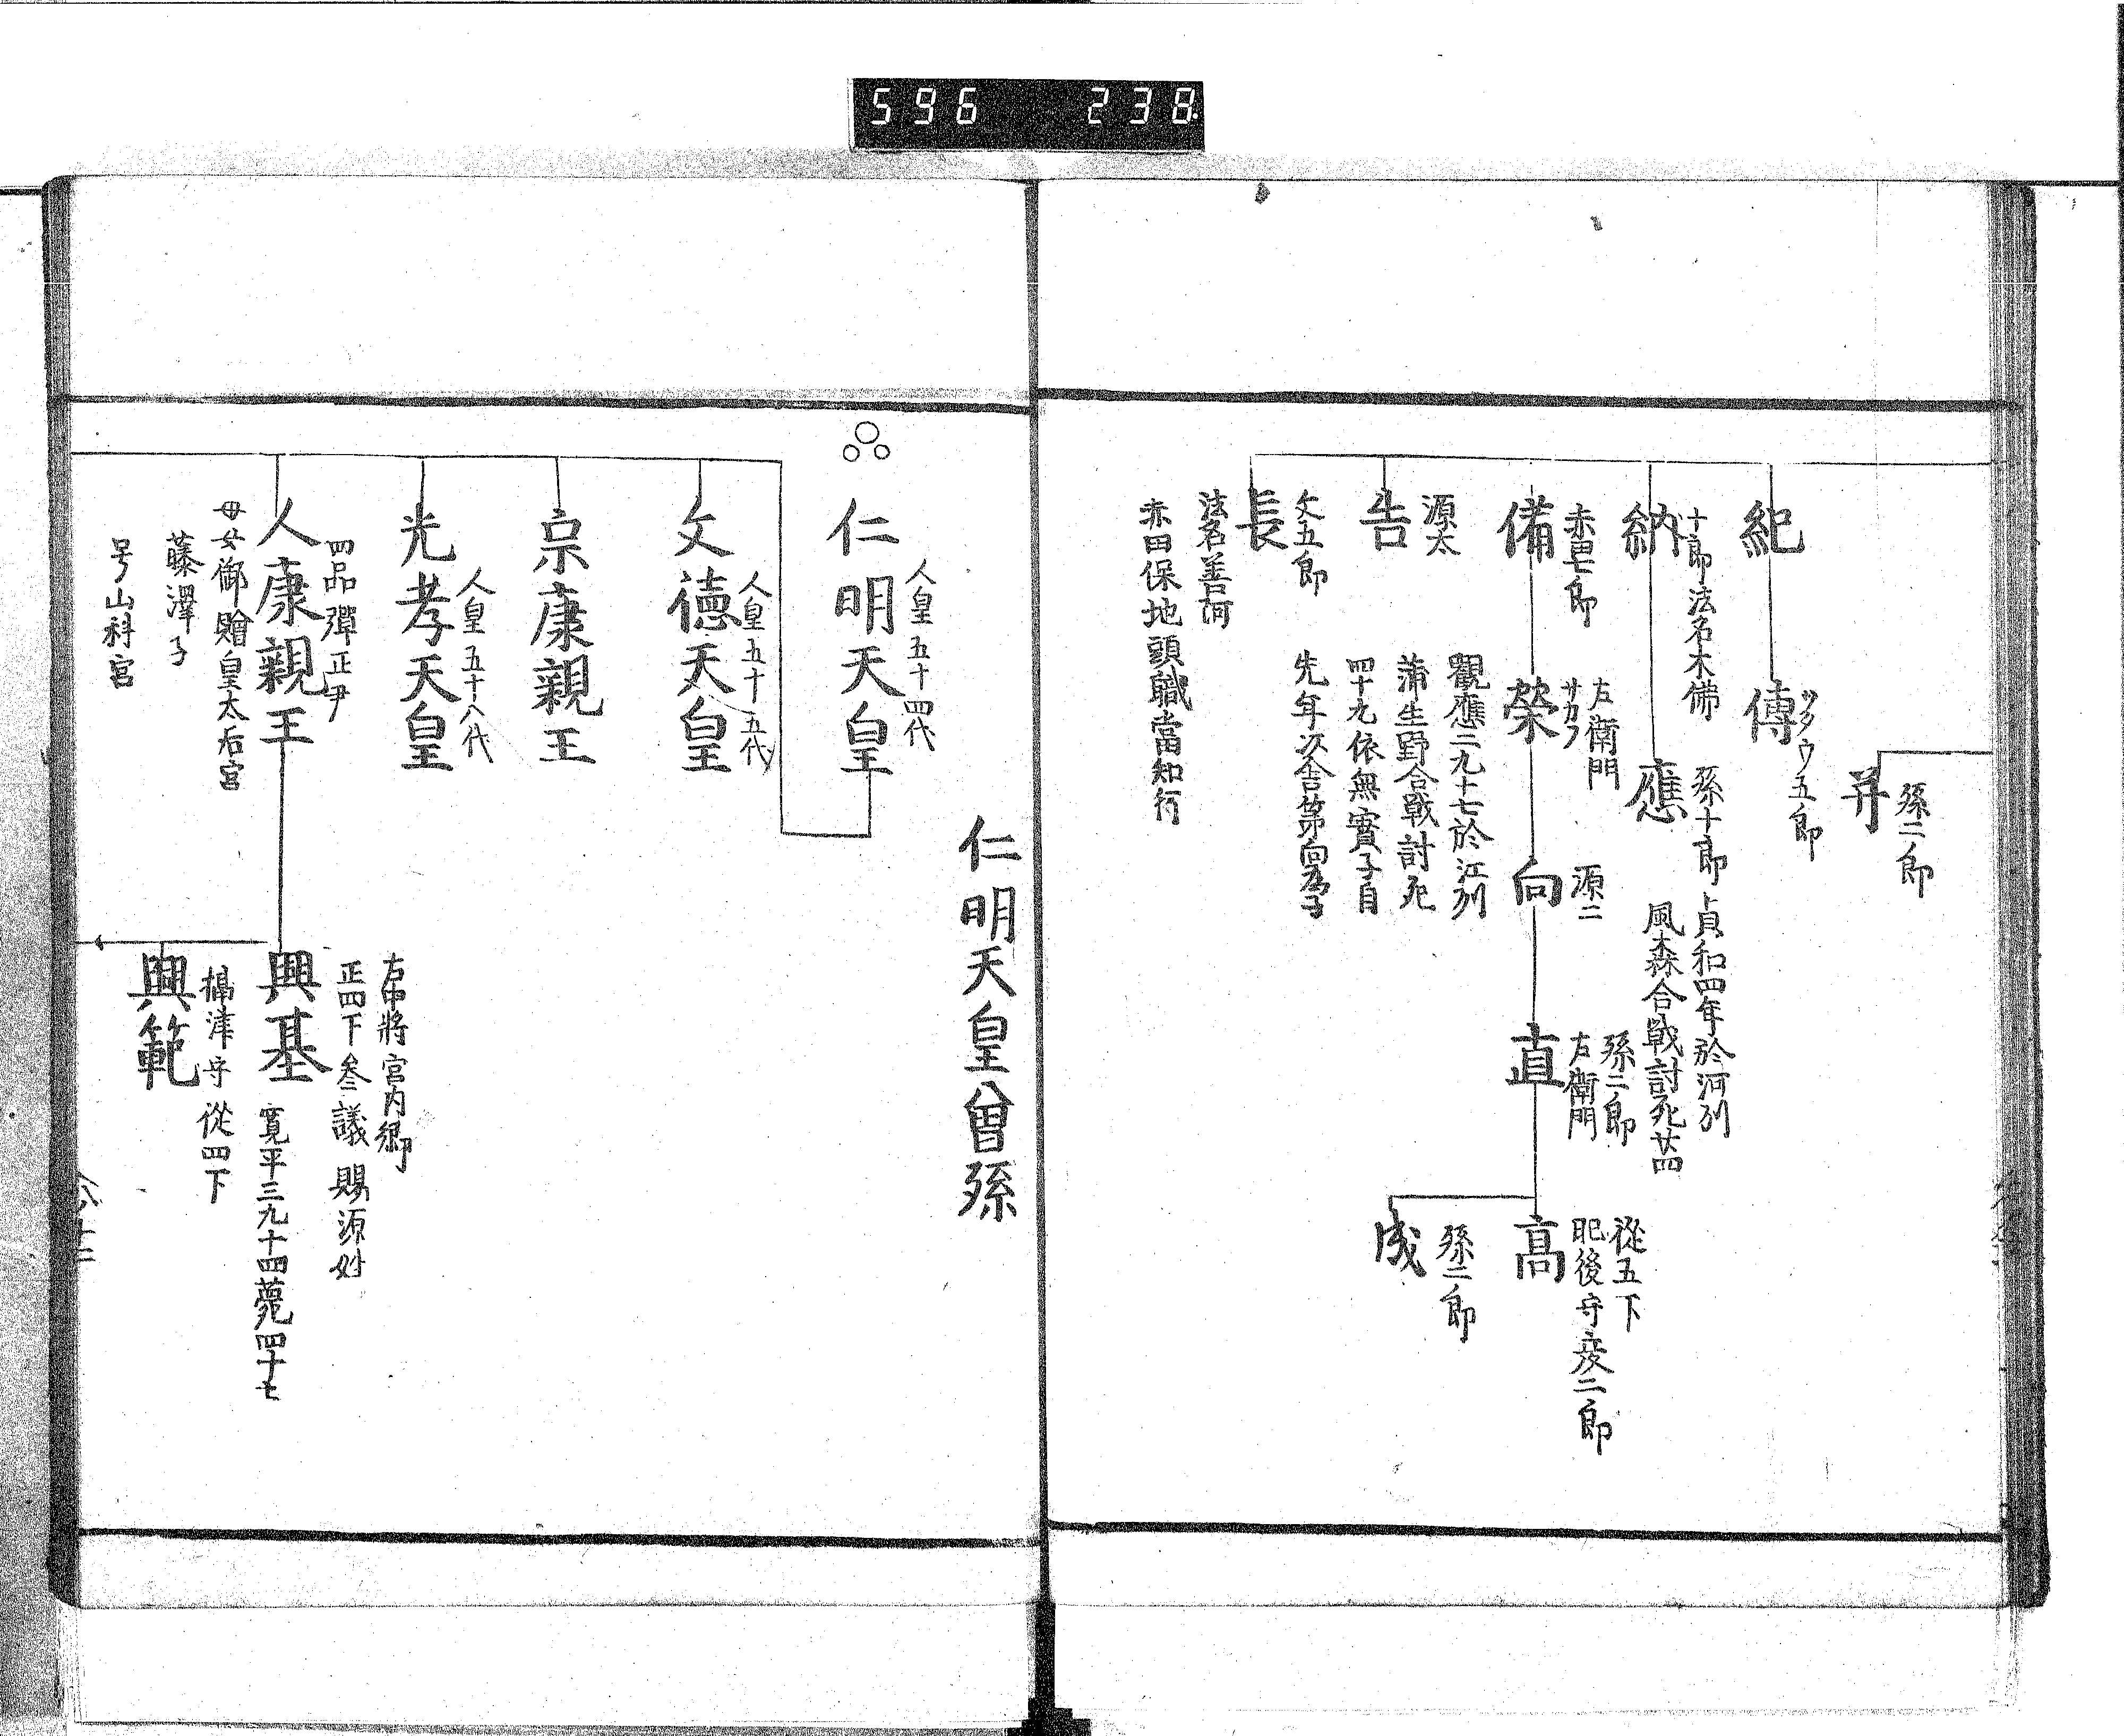 596 238
孫二郎
并
紀
ツタウ五郎
傳
十郎法名木佛
納
孫十郎
貞和四年於河列
風森合戰討死廿四
應
備
左衛門
サカフ
榮
源二
向
孫二郎
左衛門
直
從五下
肥後守彦二郎
高
孫二郎
成
觀應二九十七於江列
蒲生野合戰討死
四十九依無實子自
先年次舎第向為子
源太
告
文五郎
長
法名善阿
赤田保地頭職當知行
仁明天皇曾孫
人皇五十四代
仁明天皇
人皇五十五代
文德天皇
宗康親王
人皇五十八代
光孝天皇
四品彈正尹
人康親王
母女御贈皇太后宮
藤澤子
号山科宮
右中將宮内卿
正四下叅議賜源姓
興基
寛平三九十四薨四十七
攝津守從四下
興範